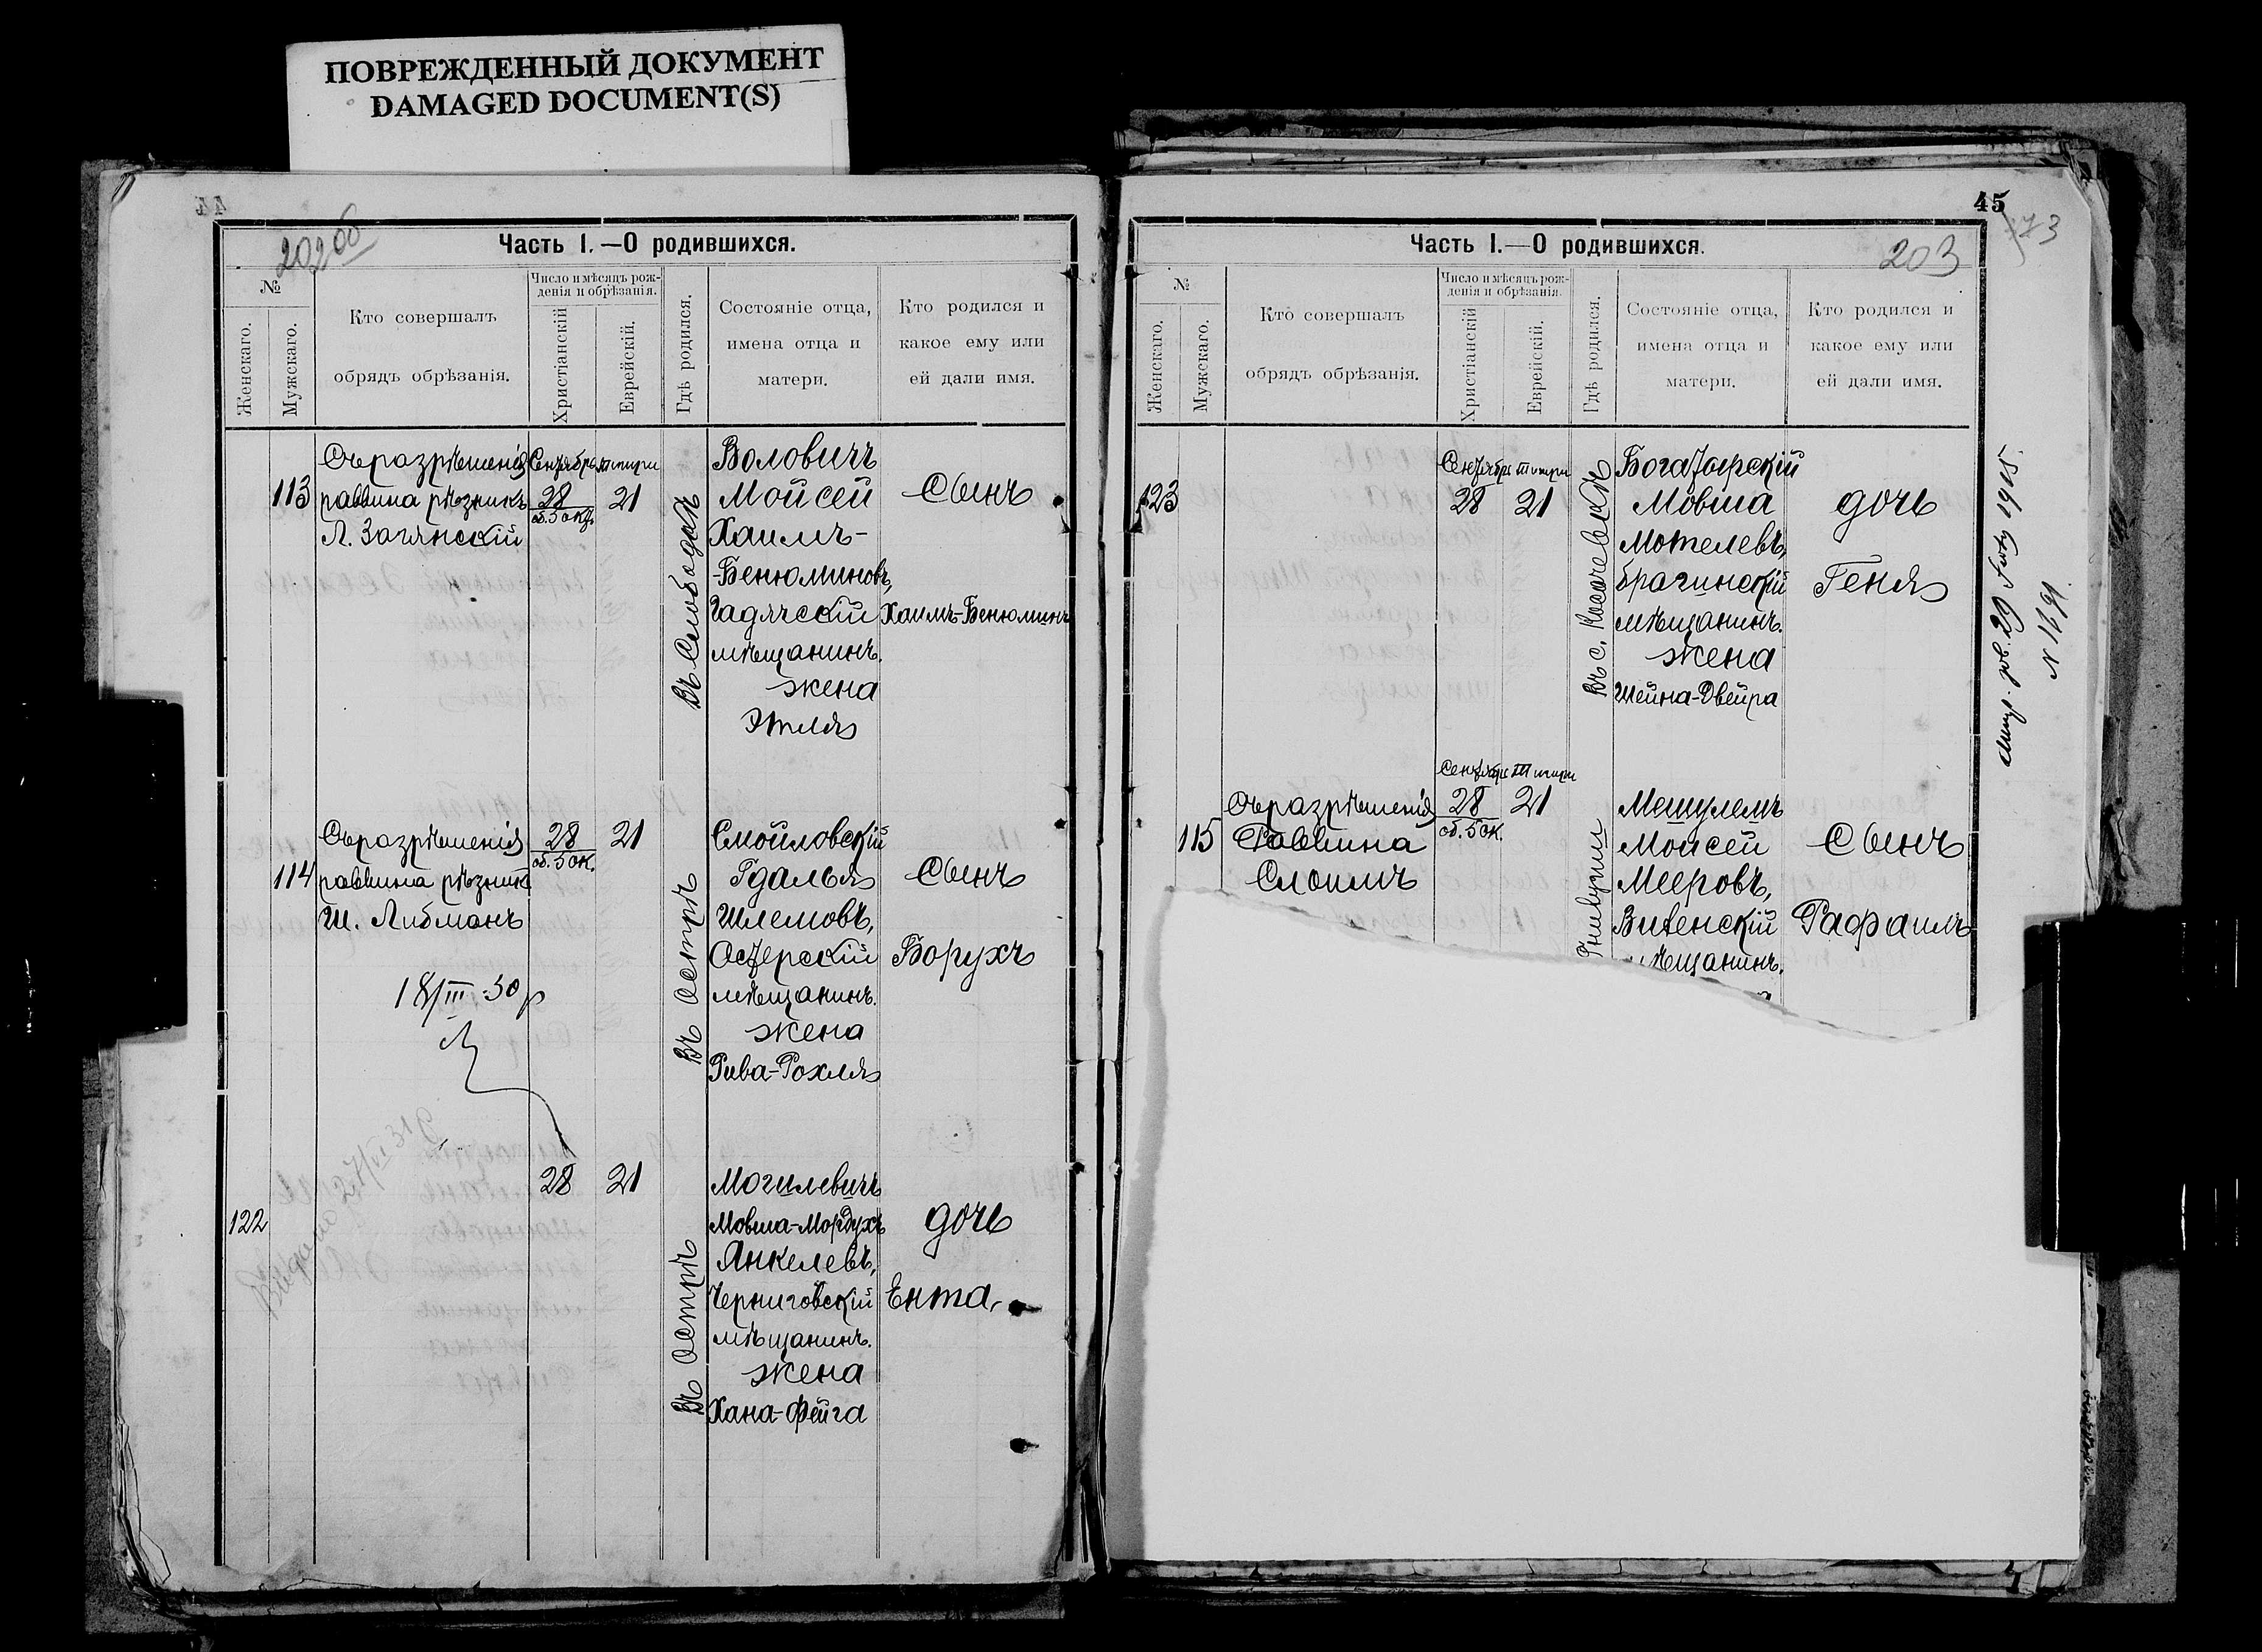 ПОВРЕЖДЕННЫЙ ДОКУМЕНТ
DAMAGED DOCUMENT(S)
44
202об
Часть I. — О родившихся.
№
Женскаго.
Мужскаго.
Кто совершалъ
обрядъ обрѣзанія.
Число и мѣсяцъ рож-
денія и обрѣзанія.
Христіанскій
Еврейскій.
Гдѣ родился.
Состояніе отца,
имена отца и
матери.
Кто родился и
какое ему или
ей дали имя.
113
Съ разрѣшенія
раввина рѣзникъ
Л. Загянскій
Сентября
28
об. 5 окт.
тишри
21
Въ Слободкѣ
Воловичъ
Мойсей
Хаимъ-
-Бенюминовъ,
Гадячскій
мѣщанинъ.
жена
Этля
Сынъ
Хаимъ-Бенюминъ
114
Съ разрѣшенія
раввина рѣзник
Ш. Либманъ
18/III-30 р
28
об. 5 ок.
21
Въ Острѣ
Смойловскій
Гдалья
Шлемовъ,
Остерскій
мѣщанинъ.
жена
Рива-Рохля
Сынъ
Борухъ
122
Выдано 27/VI 31 г
28
21
Въ Острѣ
Могилевичъ
Мовша-Мордухъ
Янкелевъ,
Черниговскій
мѣщанинъ.
жена
Хана-Фейга
дочь
Ента,
45
73
203
Часть I.—О родившихся.
№
Женскаго.
Мужскаго.
Кто совершалъ
обрядъ обрѣзанія.
Число и мѣсяцъ рож-
денія и обрѣзанія.
Христіанскій
Еврейскій.
Гдѣ родился.
Состояніе отца,
имена отца и
матери.
Кто родился и
какое ему или
ей дали имя.
123
Сентября
28
Тишри
21
Въ с. Косачевкѣ
Богатырскій
Мовша
Мотелевъ,
брагинскій
мѣщанинъ.
жена
Шейна-Двейра
дочь
Геня
1915
№ 1191
115
Съ разрѣшенія
Раввина
Слоимъ
Сентября
28
об. 5 ок.
Тишри
21
Мешулемъ
Моисей
Мееровъ,
мѣщанинъ.
Сынъ
Рафаилъ